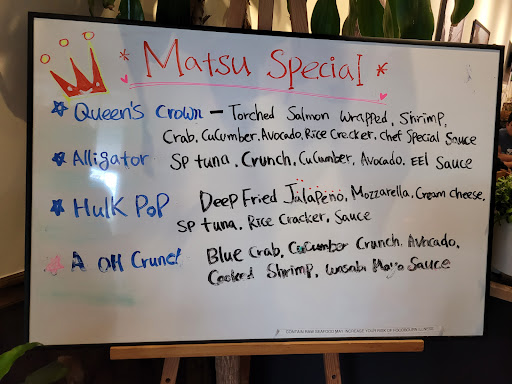 * Matsu Special *
Queen's Crown - Torched Salmon Wrapped, Shrimp,
Crab, Cucumber, Avocado, Rice Crecker, Chef Special Sauce
Alligator SP tuna, Crunch, Cucumber, Avocado, EEl Sauce
Hulk Pop Deep Fried Jalapeño, Mozzarella, Cream cheese,
SP tuna, Rice Cracker, Sauce
A OH Crunch Blue Crab, Cucumber Crunch, Avocado,
Cooked Shrimp, Wasabi Mayo Sauce
CONTAIN RAW SEAFOOD MAY INCREASE YOUR RISK OF FOODBOURN ILLNESS